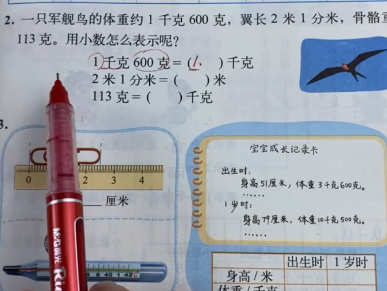 2. 一只军舰鸟的体重约 1 千克 600 克，翼长 2 米 1 分米，骨骼
113 克。用小数怎么表示呢？
1 千克 600 克 = ( 1. ) 千克
2 米 1 分米 = ( ) 米
113 克 = ( ) 千克
3.
0 2 3 4
____厘米
宝宝成长记录卡
出生时：
身高51厘米，体重3千克600克。
……
1岁时：
身高79厘米，体重10千克500克。
……
出生时 1 岁时
身高 / 米
体重 / 千克
M&G